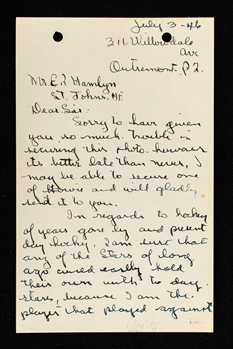 July 3-46
311 Willowdale
Ave
Outremont, P.Q.
Mr. E.P. Hamlyn
St. Johns, Nf.
Dear Sir:
Sorry to have given
you so much trouble in
securing this photo. however
its better late than never, I
may be able to secure one
of Howie and will gladly
send it to you.
In regards to hockey
of years gone by and present
day hockey, I am sure that
any of the stars of long
ago could easily hold
their own with to day
stars, because I am the
player that played against